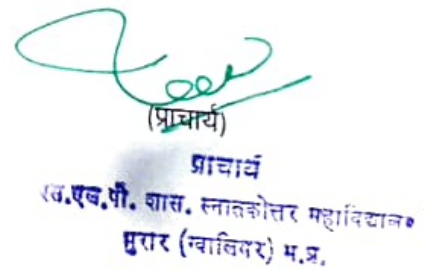 (प्राचार्य)
प्राचार्य
एस.एल.पी. शास. स्नातकोत्तर महाविद्यालय
मुरार (ग्वालियर) म.प्र.